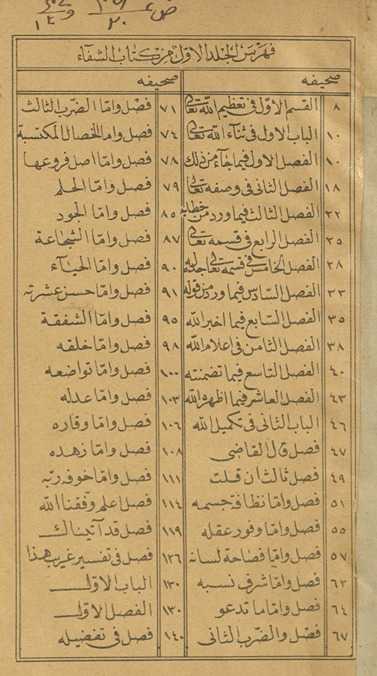 فهرس الجلد الاول من كتاب الشفاء
صحيفه
٨ القسم الاول فى تعظيم الله تعالى
١٠ الباب الاول فى ثناء الله تعالى
١٠ الفصل الاول فيما جاء من ذلك
١٨ الفصل الثانى فى وصفه تعالى
٢٢ الفصل الثالث فيما ورد من خطابه
٢٥ الفصل الرابع فى قسمه تعالى
٢٨ الفصل الخامس فى قسمه تعالى جده له
٣٣ الفصل السادس فيما ورد من قوله
٣٥ الفصل السابع فيما اخبر الله
٣٨ الفصل الثامن فى اعلام الله
٤٠ الفصل التاسع فيما تضمنته
٤٣ الفصل العاشر فيما اظهره الله
٤٦ الباب الثانى فى تكميل الله
٤٧ فصل قال القاضى
٤٩ فصل ثالث ان قلت
٥١ فصل واما نظافة جسمه
٥٥ فصل واما وفور عقله
٥٧ فصل واما فصاحة لسانه
٦٢ فصل واما شرف نسبه
٦٤ فصل واما ما تدعو
٦٧ فصل والضرب الثانى
صحيفه
٧١ فصل واما الضرب الثالث
٧٤ فصل واما الخصال المكتسبة
٧٨ فصل واما اصل فروعها
٧٩ فصل واما الحلم
٨٥ فصل واما الجود
٨٧ فصل واما الشجاعة
٩٠ فصل واما الحياء
٩١ فصل واما حسن عشرته
٩٥ فصل واما الشفقة
٩٨ فصل واما خلقه
١٠٠ فصل واما تواضعه
١٠٣ فصل واما عدله
١٠٦ فصل واما وقاره
١٠٨ فصل واما زهده
١١١ فصل واما خوفه ربه
١١٤ فصل اعلم وفقنا الله
١١٩ فصل قد آتيناك
١٢٦ فصل فى تفسير غريب هذا
١٣٠ الباب الاول
١٣٠ الفصل الاول
١٤٠ فصل فى تفضيله